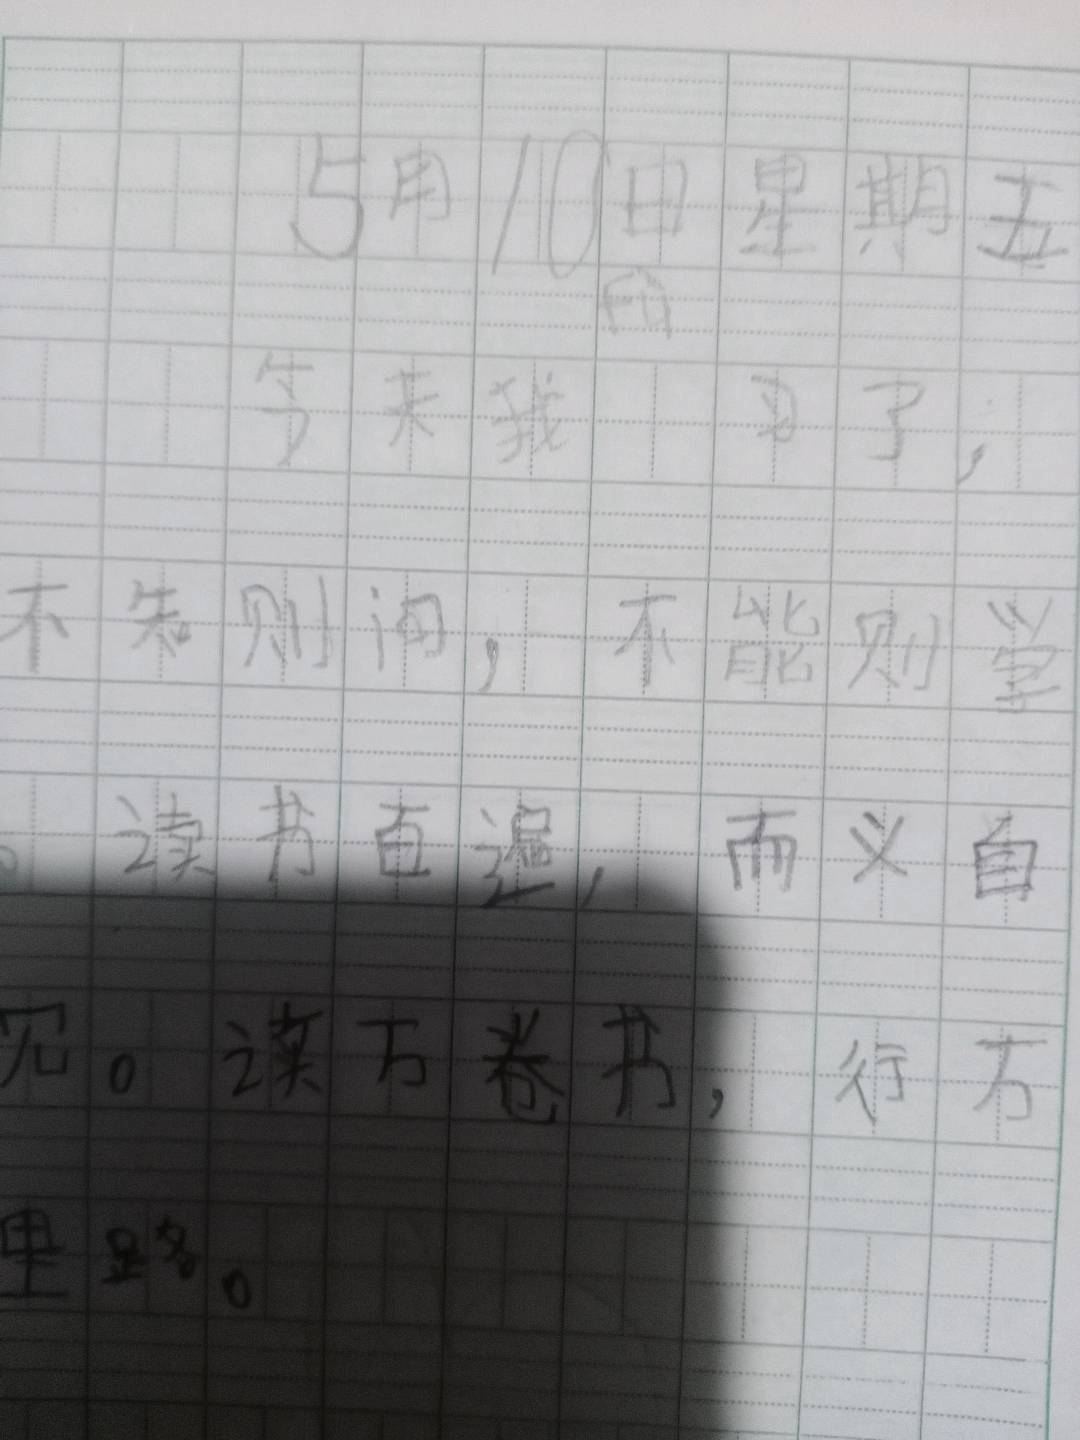 5月10日星期五
今天我 习了，
不知则问，不能则学
。读书百遍，而义自
见。读万卷书，行万
里路。